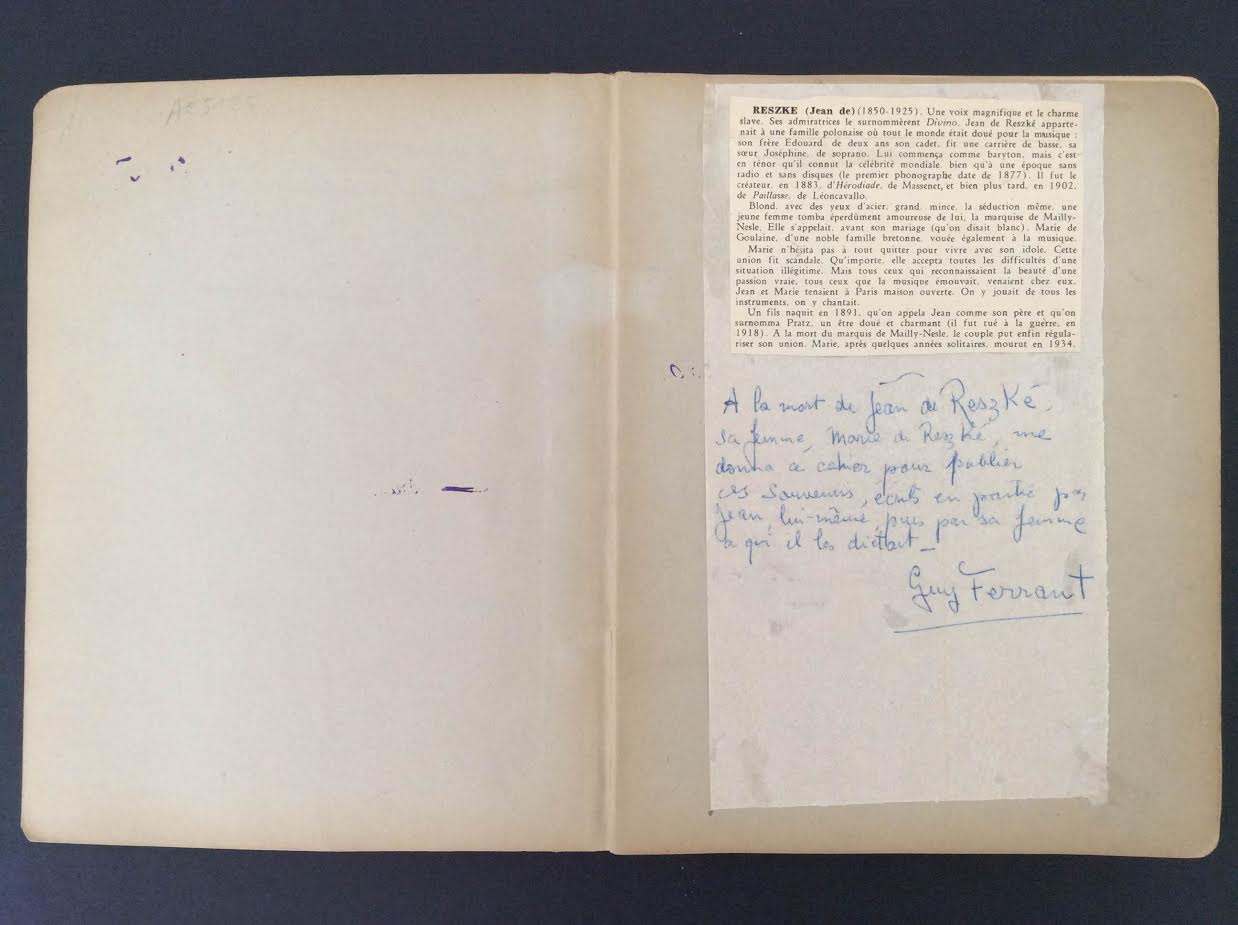 RESZKE (Jean de) (1850-1925). Une voix magnifique et le charme
slave. Ses admiratrices le surnommèrent Divino. Jean de Reszké apparte-
nait à une famille polonaise où tout le monde était doué pour la musique :
son frère Edouard de deux ans son cadet, fit une carrière de basse, sa
sœur Joséphine, de soprano. Lui commença comme baryton, mais c'est
en ténor qu'il connut la célébrité mondiale, bien qu'à une époque sans
radio et sans disques (le premier phonographe date de 1877). Il fut le
créateur, en 1883, d'Hérodiade, de Massenet, et bien plus tard, en 1902,
de Paillasse, de Léoncavallo.
Blond, avec des yeux d'acier, grand, mince, la séduction même, une
jeune femme tomba éperdûment amoureuse de lui, la marquise de Mailly-
Nesle. Elle s'appelait, avant son mariage (qu'on disait blanc), Marie de
Goulaine, d'une noble famille bretonne, vouée également à la musique.
Marie n'hésita pas à tout quitter pour vivre avec son idole. Cette
union fit scandale. Qu'importe, elle accepta toutes les difficultés d'une
situation illégitime. Mais tous ceux qui reconnaissaient la beauté d'une
passion vraie, tous ceux que la musique émouvait, venaient chez eux.
Jean et Marie tenaient à Paris maison ouverte. On y jouait de tous les
instruments, on y chantait.
Un fils naquit en 1891, qu'on appela Jean comme son père et qu'on
surnomma Pratz, un être doué et charmant (il fut tué à la guerre, en
1918). A la mort du marquis de Mailly-Nesle, le couple put enfin régula-
riser son union. Marie, après quelques années solitaires, mourut en 1934.
A la mort de Jean de Reszké,
sa femme, Marie de Reszké, me
donna ce cahier pour publier
ces souvenirs, écrits en partie par
Jean lui-même, puis par sa femme
à qui il les dictait_
Guy Ferrant